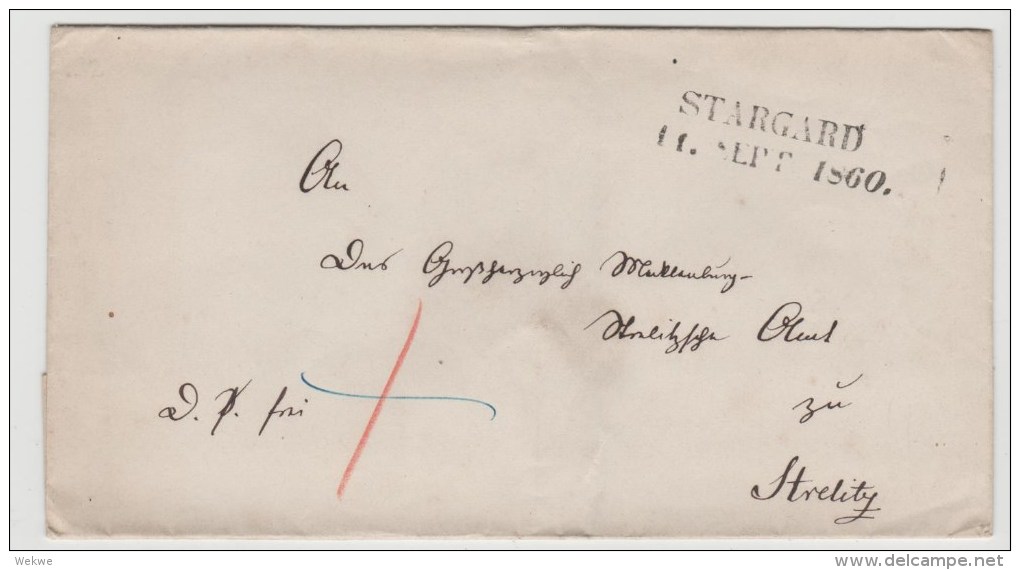 STARGARD
11. SEPT 1860.
An
Das Großherzoglich Mecklenburg-
Strelitzsche Amt
D. P. frei
zu
Strelitz
Wekwe
delcampe.net